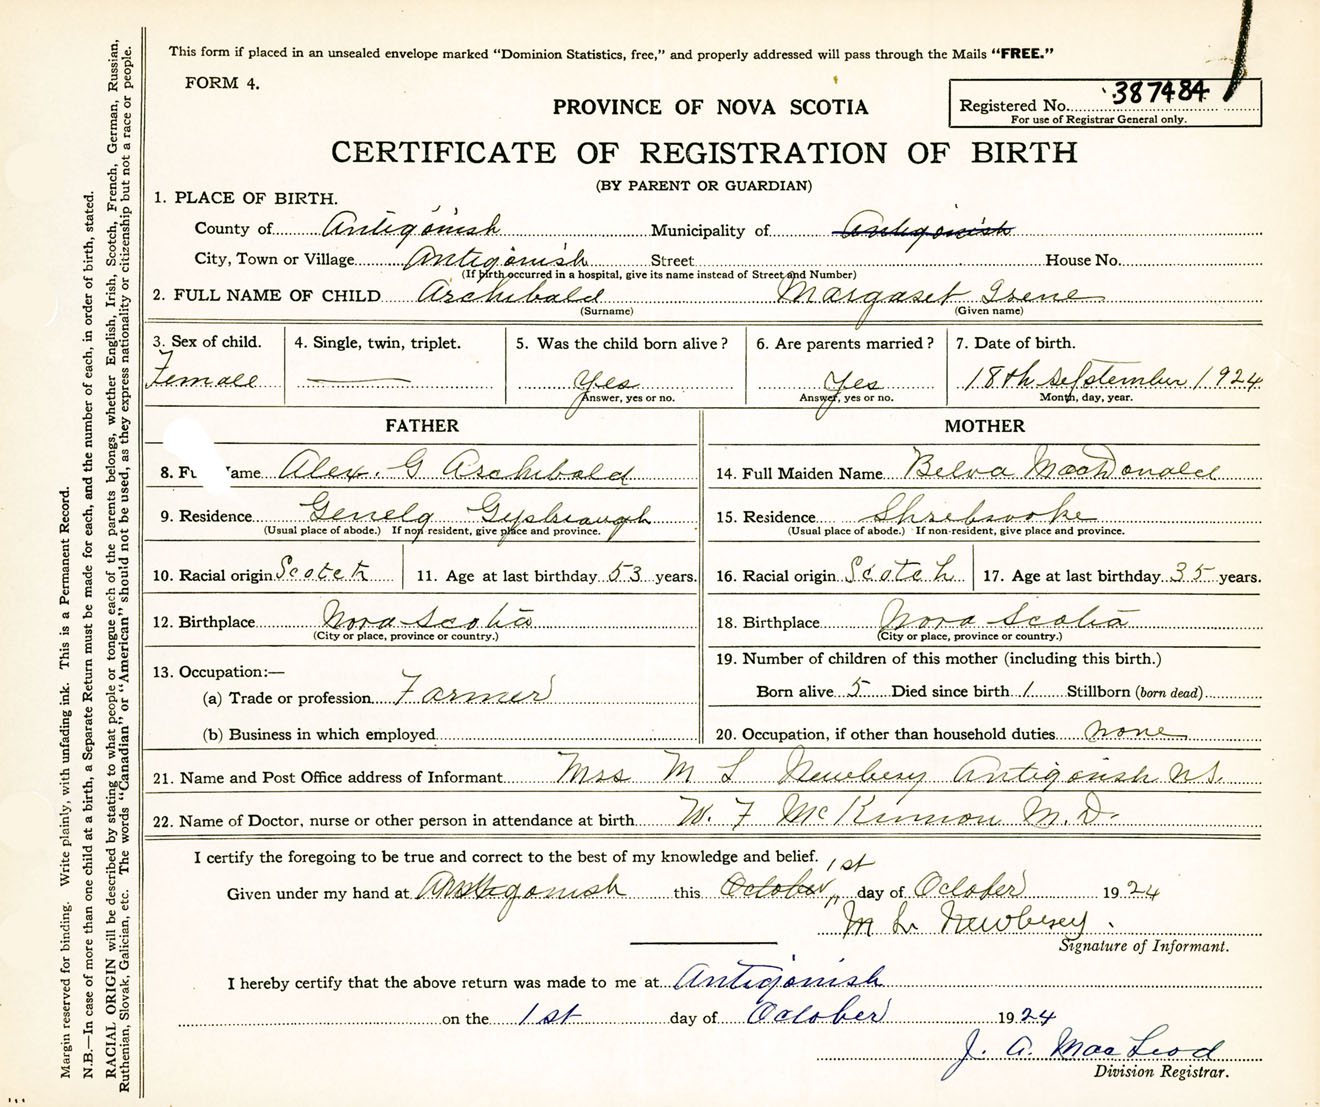 This form if placed in an unsealed envelope marked “Dominion Statistics, free,” and properly addressed will pass through the Mails “FREE.”
FORM 4.
PROVINCE OF NOVA SCOTIA
Registered No. 387484
For use of Registrar General only.
CERTIFICATE OF REGISTRATION OF BIRTH
(BY PARENT OR GUARDIAN)
1. PLACE OF BIRTH.
County of Antigonish Municipality of Antigonish
City, Town or Village Antigonish Street House No.
(If birth occurred in a hospital, give its name instead of Street and Number)
2. FULL NAME OF CHILD Archibald Margaret Irene
(Surname) (Given name)
3. Sex of child. 4. Single, twin, triplet. 5. Was the child born alive? 6. Are parents married? 7. Date of birth.
Female Yes Yes 18th September 1924
Answer, yes or no. Answer, yes or no. Month, day, year.
FATHER MOTHER
8. Fu ame Alex. G Archibald 14. Full Maiden Name Belva MacDonald
9. Residence Genelg 15. Residence
(Usual place of abode.) If non resident, give place and province. (Usual place of abode.) If non-resident, give place and province.
10. Racial origin Scotch 11. Age at last birthday 53 years. 16. Racial origin Scotch 17. Age at last birthday 35 years.
12. Birthplace Nova Scotia 18. Birthplace Nova Scotia
(City or place, province or country.) (City or place, province or country.)
13. Occupation:— 19. Number of children of this mother (including this birth.)
(a) Trade or profession Farmer Born alive 5 Died since birth 1 Stillborn (born dead)
(b) Business in which employed 20. Occupation, if other than household duties none
21. Name and Post Office address of Informant Mrs M L Newbery Antigonish N.S.
22. Name of Doctor, nurse or other person in attendance at birth W. F McKinnon M.D.
I certify the foregoing to be true and correct to the best of my knowledge and belief.
Given under my hand at Antigonish this October 1st day of October 1924
M L. Newbery.
Signature of Informant.
I hereby certify that the above return was made to me at Antigonish
on the 1st day of October 1924
J. A. MacLeod
Division Registrar.
Margin reserved for binding. Write plainly, with unfading ink. This is a Permanent Record.
N.B.—In case of more than one child at a birth, a Separate Return must be made for each, and the number of each, in order of birth, stated.
RACIAL ORIGIN will be described by stating to what people or tongue each of the parents belongs, whether English, Irish, Scotch, French, German, Russian,
Ruthenian, Slovak, Galician, etc. The words “Canadian” or “American” should not be used, as they express nationality or citizenship but not a race or people.